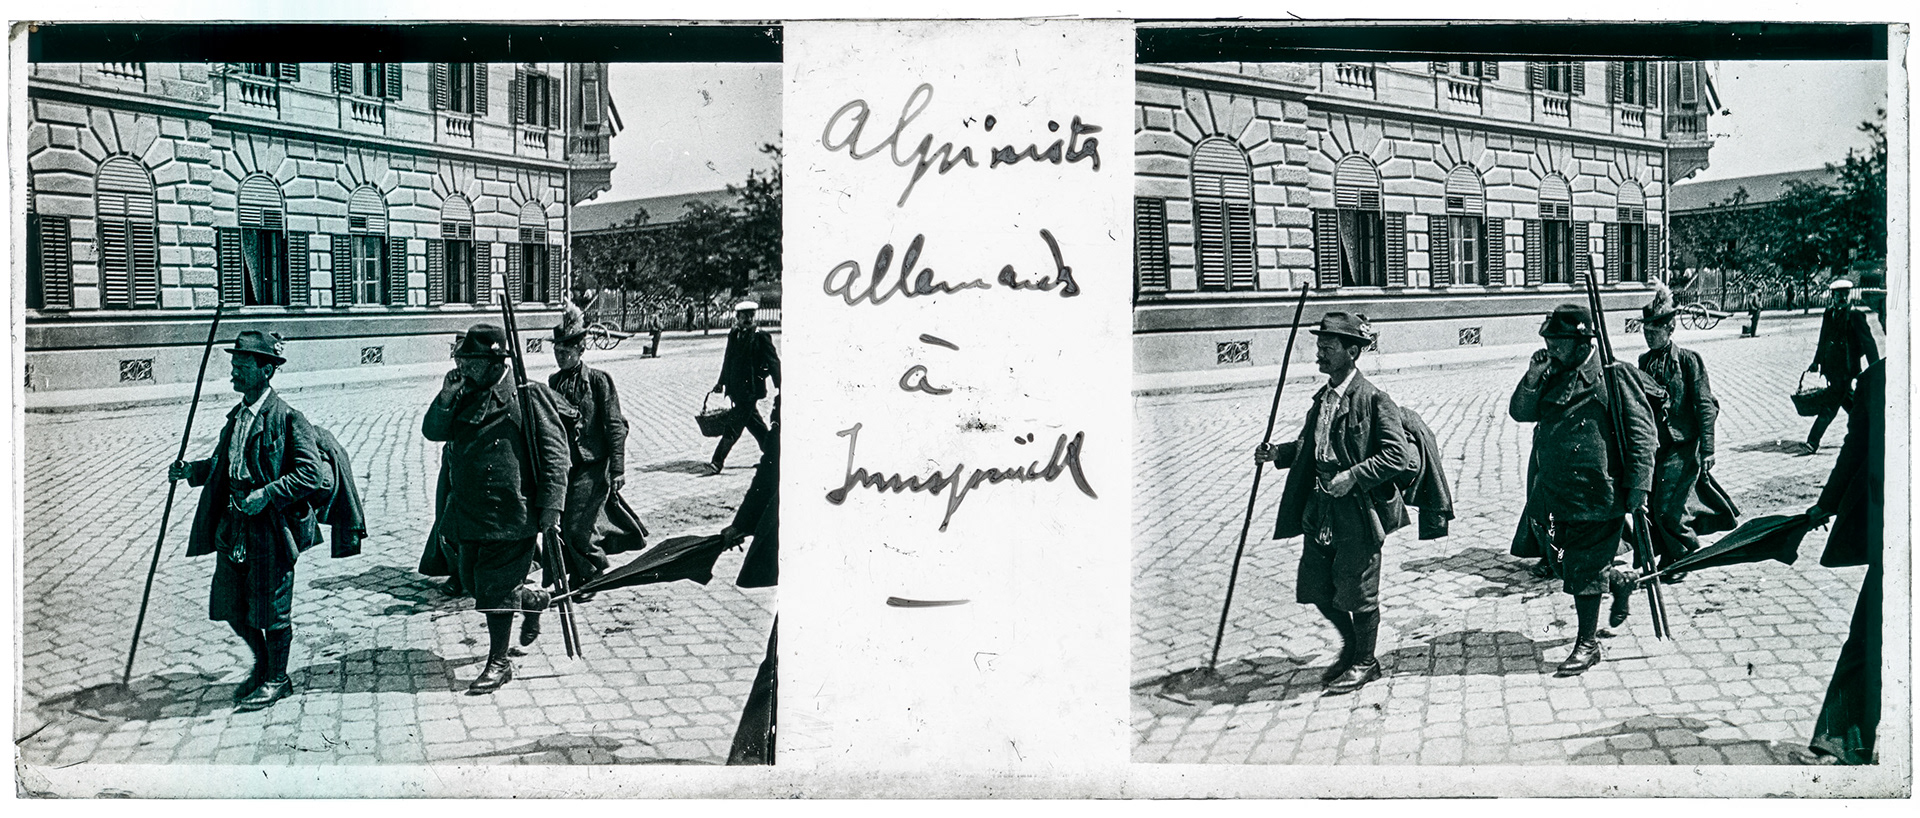 Alpinists
allemands
à
Innsprück